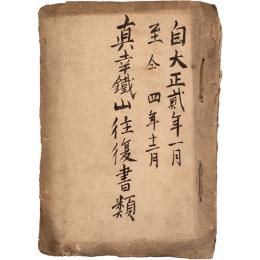 自大正貳年一月
至仝四年十二月
真幸鐵山往復書類